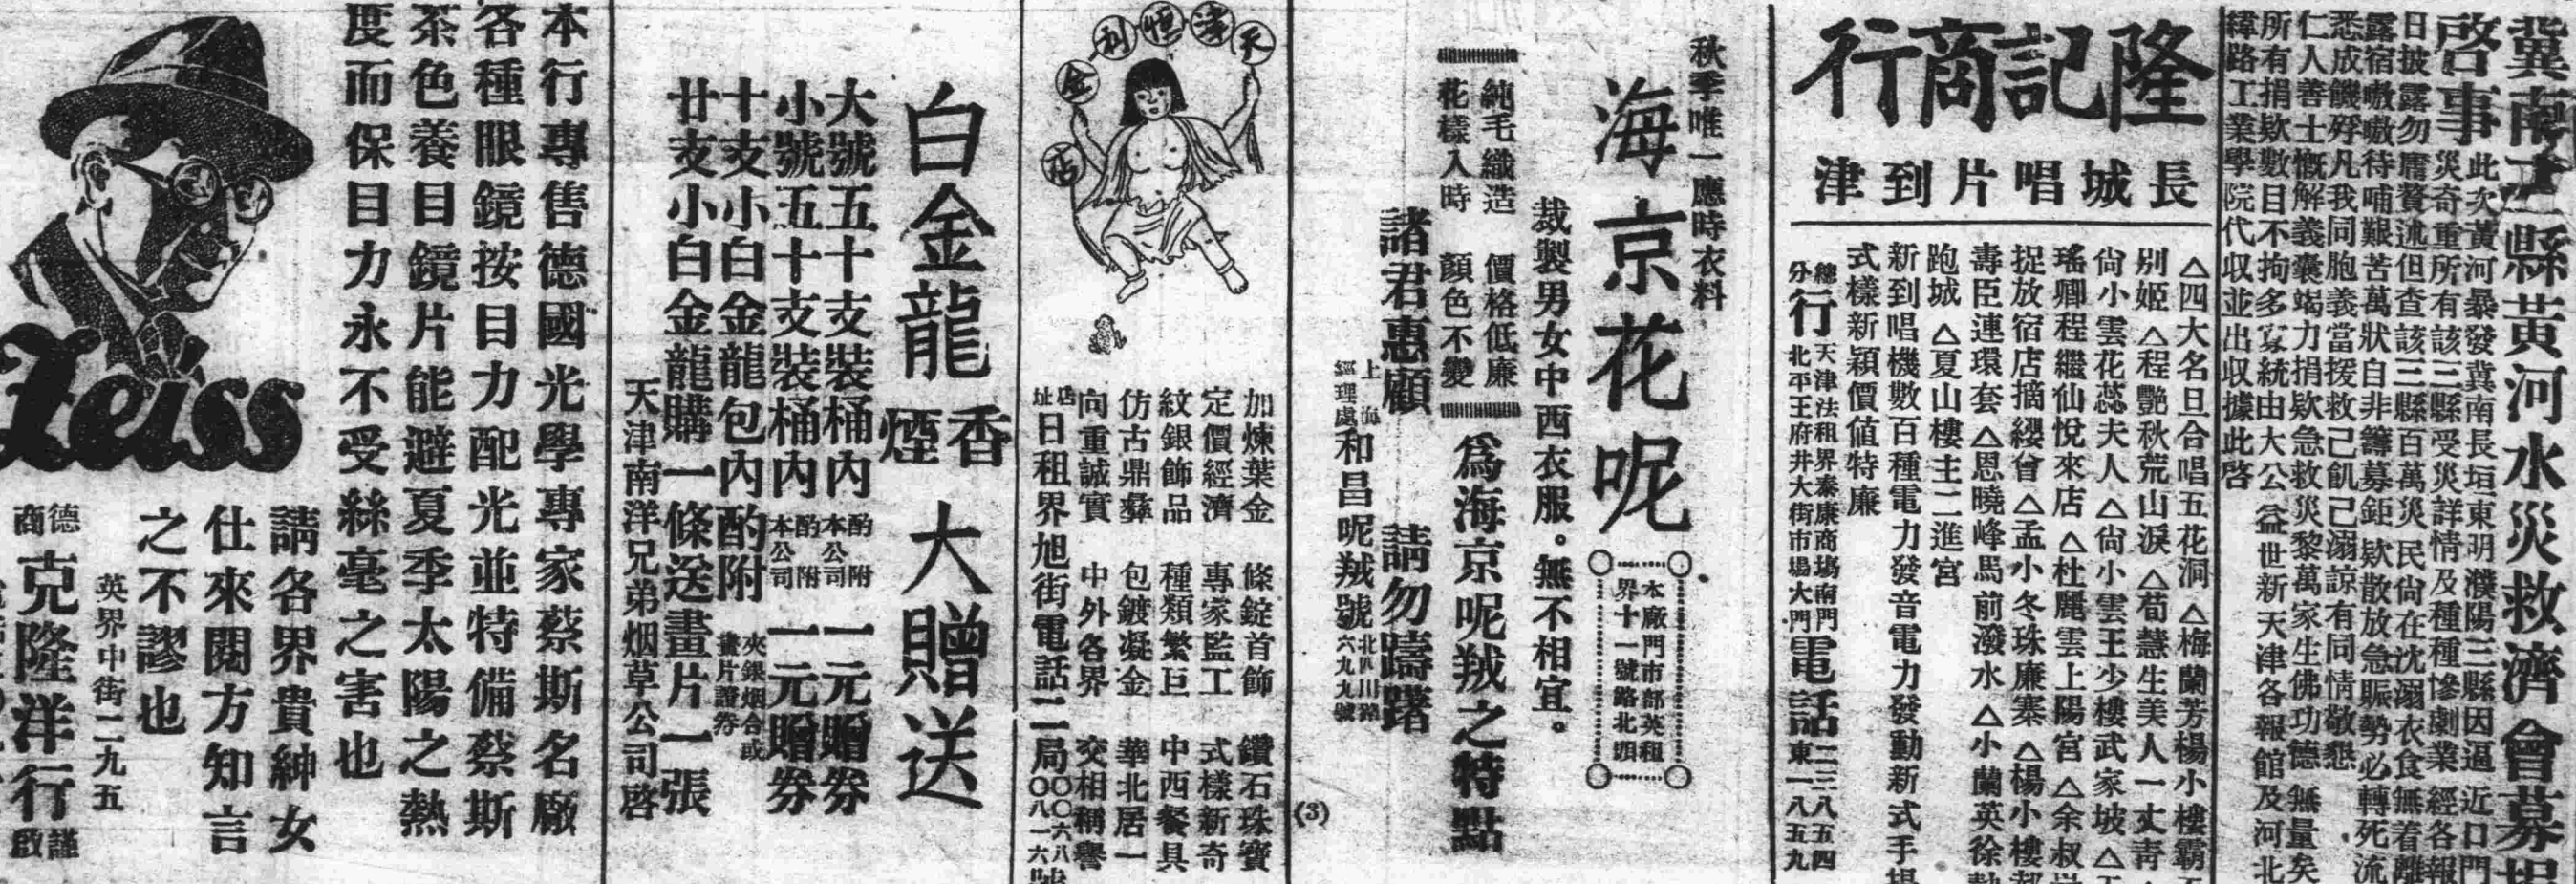 冀南三縣黃河水災救濟會募捐
啓事
此次黃河暴發冀南長垣東明濮陽三縣因逼近口門
災奇重所有該三縣受災詳情及種種慘劇業經各報
日披露勿庸贅述但查該三縣百萬災民尙在沈溺衣食無着離
露宿嗷嗷待哺艱苦萬狀自非籌募鉅欵散放急賑勢必轉死流
悉成餓殍凡我同胞義當援救己飢己溺諒有同情敬懇
仁人善士慨解義囊竭力捐欵急救災黎萬家生佛功德無量矣
所有捐欵數目不拘多寡統由大公益世新天津各報館及河北
緯路工業學院代収並出収據此啓
隆記商行
長城唱片到津
△四大名旦合唱五花洞 △梅蘭芳楊小樓霸王
別姬 △程艷秋荒山淚 △荀慧生美人一丈青
尙小雲花蕊夫人 △尙小雲王少樓武家坡 △
瑤卿程繼仙悅來店 △杜麗雲上陽宮 △余叔岩
捉放宿店摘纓會 △孟小冬珠廉寨 △楊小樓郝
壽臣連環套 △恩曉峰馬前潑水 △小蘭英徐
跑城 △夏山樓主二進宮
新到唱機數百種電力發音電力發動新式手提
式樣新穎價值特廉
總行天津法租界泰康商塲南門電話二三八五四
分行北平王府井大街市塲大門電話東一八五九
秋季唯一應時衣料
海京花呢
本廠門市部英租
界十一號路北頭
裁製男女中西衣服。無不相宜。
純毛織造 價格低廉
花樣入時 顏色不變
爲海京呢羢之特點
諸君惠顧 請勿躊躇
上海
經理處
和昌呢羢號
北四川路
六九九號
(3)
天津恒利金店
加煉葉金 條錠首飾 鑽石珠寶
定價經濟 專家監工 式樣新奇
紋銀飾品 種類繁巨 中西餐具
仿古鼎彝 包鍍凝金 華北居一
向重誠實 中外各界 交相稱譽
店址
日租界旭街電話二局
〇〇六八
〇八一六號
白金龍香煙 大贈送
大號五十支裝桶內酌附本公司一元贈券
小號五十支裝桶內酌附本公司一元贈券
十支小白金龍包內酌附夾銀烟合或畫片證券
廿支小白金龍購一條送畫片一張
天津南洋兄弟烟草公司啓
本行專售德國光學專家蔡斯名廠
各種眼鏡按目力配光並特備蔡斯
茶色養目鏡片能避夏季太陽之熱
度而保目力永不受絲毫之害也
Zeiss
請各界貴紳女
仕來閱方知言
之不謬也
英界中街二九五
德商
克隆洋行
謹啟